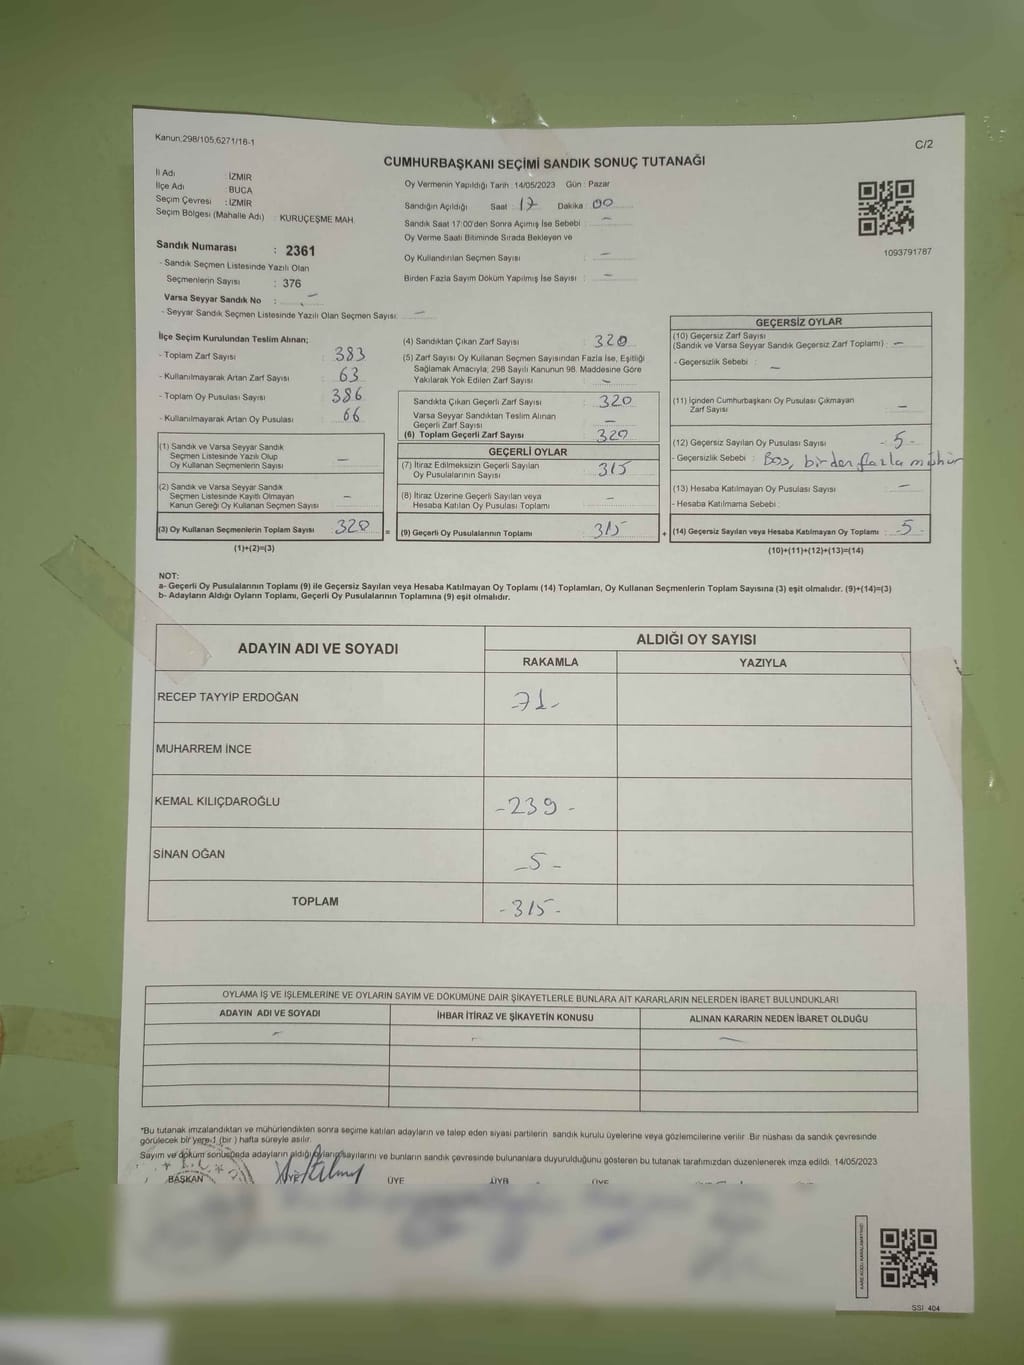 Kanun;298/105,6271/16-1
C/2
CUMHURBAŞKANI SEÇİMİ SANDIK SONUÇ TUTANAĞI
İl Adı : İZMİR
İlçe Adı : BUCA
Seçim Çevresi : İZMİR
Seçim Bölgesi (Mahalle Adı) : KURUÇEŞME MAH.
Sandık Numarası : 2361
- Sandık Seçmen Listesinde Yazılı Olan
Seçmenlerin Sayısı : 376
Varsa Seyyar Sandık No : -
- Seyyar Sandık Seçmen Listesinde Yazılı Olan Seçmen Sayısı: -
Oy Vermenin Yapıldığı Tarih : 14/05/2023 Gün : Pazar
Sandığın Açıldığı Saat : 17 Dakika : 00
Sandık Saat 17:00'den Sonra Açımış İse Sebebi : -
Oy Verme Saati Bitiminde Sırada Bekleyen ve
Oy Kullandırılan Seçmen Sayısı : -
Birden Fazla Sayım Döküm Yapılmış İse Sayısı : -
1093791787
İlçe Seçim Kurulundan Teslim Alınan;
- Toplam Zarf Sayısı : 383
- Kullanılmayarak Artan Zarf Sayısı : 63
- Toplam Oy Pusulası Sayısı : 386
- Kullanılmayarak Artan Oy Pusulası : 66
(1) Sandık ve Varsa Seyyar Sandık
Seçmen Listesinde Yazılı Olup
Oy Kullanan Seçmenlerin Sayısı -
(2) Sandık ve Varsa Seyyar Sandık
Seçmen Listesinde Kayıtlı Olmayan
Kanun Gereği Oy Kullanan Seçmen Sayısı -
(3) Oy Kullanan Seçmenlerin Toplam Sayısı 320
(1)+(2)=(3)
(4) Sandıktan Çıkan Zarf Sayısı : 320
(5) Zarf Sayısı Oy Kullanan Seçmen Sayısından Fazla İse, Eşitliği
Sağlamak Amacıyla; 298 Sayılı Kanunun 98. Maddesine Göre
Yakılarak Yok Edilen Zarf Sayısı : -
Sandıkta Çıkan Geçerli Zarf Sayısı : 320
Varsa Seyyar Sandıktan Teslim Alınan
Geçerli Zarf Sayısı : -
(6) Toplam Geçerli Zarf Sayısı : 320
GEÇERLİ OYLAR
(7) İtiraz Edilmeksizin Geçerli Sayılan
Oy Pusulalarının Sayısı : 315
(8) İtiraz Üzerine Geçerli Sayılan veya
Hesaba Katılan Oy Pusulası Toplamı : -
=
(9) Geçerli Oy Pusulalarının Toplamı : 315
+
GEÇERSİZ OYLAR
(10) Geçersiz Zarf Sayısı
(Sandık ve Varsa Seyyar Sandık Geçersiz Zarf Toplamı) : -
- Geçersizlik Sebebi : -
(11) İçinden Cumhurbaşkanı Oy Pusulası Çıkmayan
Zarf Sayısı : -
(12) Geçersiz Sayılan Oy Pusulası Sayısı : - 5 -
- Geçersizlik Sebebi : Boş, birden fazla mühür
(13) Hesaba Katılmayan Oy Pusulası Sayısı : -
- Hesaba Katılmama Sebebi :
(14) Geçersiz Sayılan veya Hesaba Katılmayan Oy Toplamı : -5-
(10)+(11)+(12)+(13)=(14)
NOT:
a- Geçerli Oy Pusulalarının Toplamı (9) ile Geçersiz Sayılan veya Hesaba Katılmayan Oy Toplamı (14) Toplamları, Oy Kullanan Seçmenlerin Toplam Sayısına (3) eşit olmalıdır. (9)+(14)=(3)
b- Adayların Aldığı Oyların Toplamı, Geçerli Oy Pusulalarının Toplamına (9) eşit olmalıdır.
ADAYIN ADI VE SOYADI
ALDIĞI OY SAYISI
RAKAMLA YAZIYLA
RECEP TAYYİP ERDOĞAN -71-
MUHARREM İNCE
KEMAL KILIÇDAROĞLU -239-
SİNAN OĞAN -5-
TOPLAM -315-
OYLAMA İŞ VE İŞLEMLERİNE VE OYLARIN SAYIM VE DÖKÜMÜNE DAİR ŞİKAYETLERLE BUNLARA AİT KARARLARIN NELERDEN İBARET BULUNDUKLARI
ADAYIN ADI VE SOYADI İHBAR İTİRAZ VE ŞİKAYETİN KONUSU ALINAN KARARIN NEDEN İBARET OLDUĞU
- - -
*Bu tutanak imzalandıktan ve mühürlendikten sonra seçime katılan adayların ve talep eden siyasi partilerin sandık kurulu üyelerine veya gözlemcilerine verilir. Bir nüshası da sandık çevresinde
görülecek bir yere 1 (bir ) hafta süreyle asılır.
Sayım ve döküm sonusunda adayların aldığı oyların sayılarını ve bunların sandık çevresinde bulunanlara duyurulduğunu gösteren bu tutanak tarafımızdan düzenlenerek imza edildi. 14/05/2023
BAŞKAN ÜYE ÜYE ÜYE
SSI 404